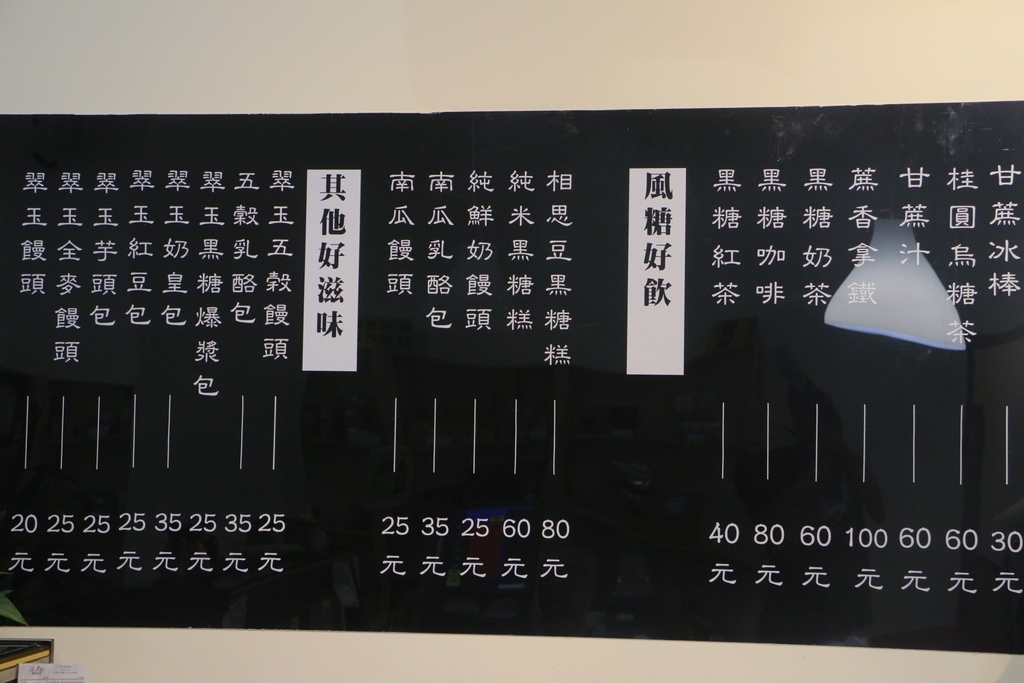 甘蔗冰棒 30元
桂圓烏糖茶 60元
甘蔗汁 60元
蔗香拿鐵 100元
黑糖奶茶 60元
黑糖咖啡 80元
黑糖紅茶 40元
風糖好飲
相思豆黑糖糕 80元
純米黑糖糕 60元
純鮮奶饅頭 25元
南瓜乳酪包 35元
南瓜饅頭 25元
其他好滋味
翠玉五穀饅頭 25元
五穀乳酪包 35元
翠玉黑糖爆漿包 25元
翠玉奶皇包 35元
翠玉紅豆包 25元
翠玉芋頭包 25元
翠玉全麥饅頭 25元
翠玉饅頭 20元